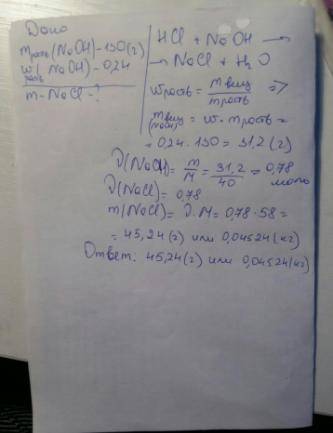 Дано
mраств (NaOH) - 130 (г)
W раств (NaOH) - 0,24
m - NaCl - ?
HCl + NaOH →
→ NaCl + H₂O
Wраств = mвещ / mраств =>
mвещ (NaOH) = W · mраств =
= 0,24 · 130 = 31,2 (г)
ν(NaOH) = m/M = 31,2/40 = 0,78 моль
ν(NaCl) = 0,78
m(NaCl) = ν · M = 0,78 · 58 =
= 45,24 (г) или 0,04524 (кг)
Ответ: 45,24 (г) или 0,04524 (кг)